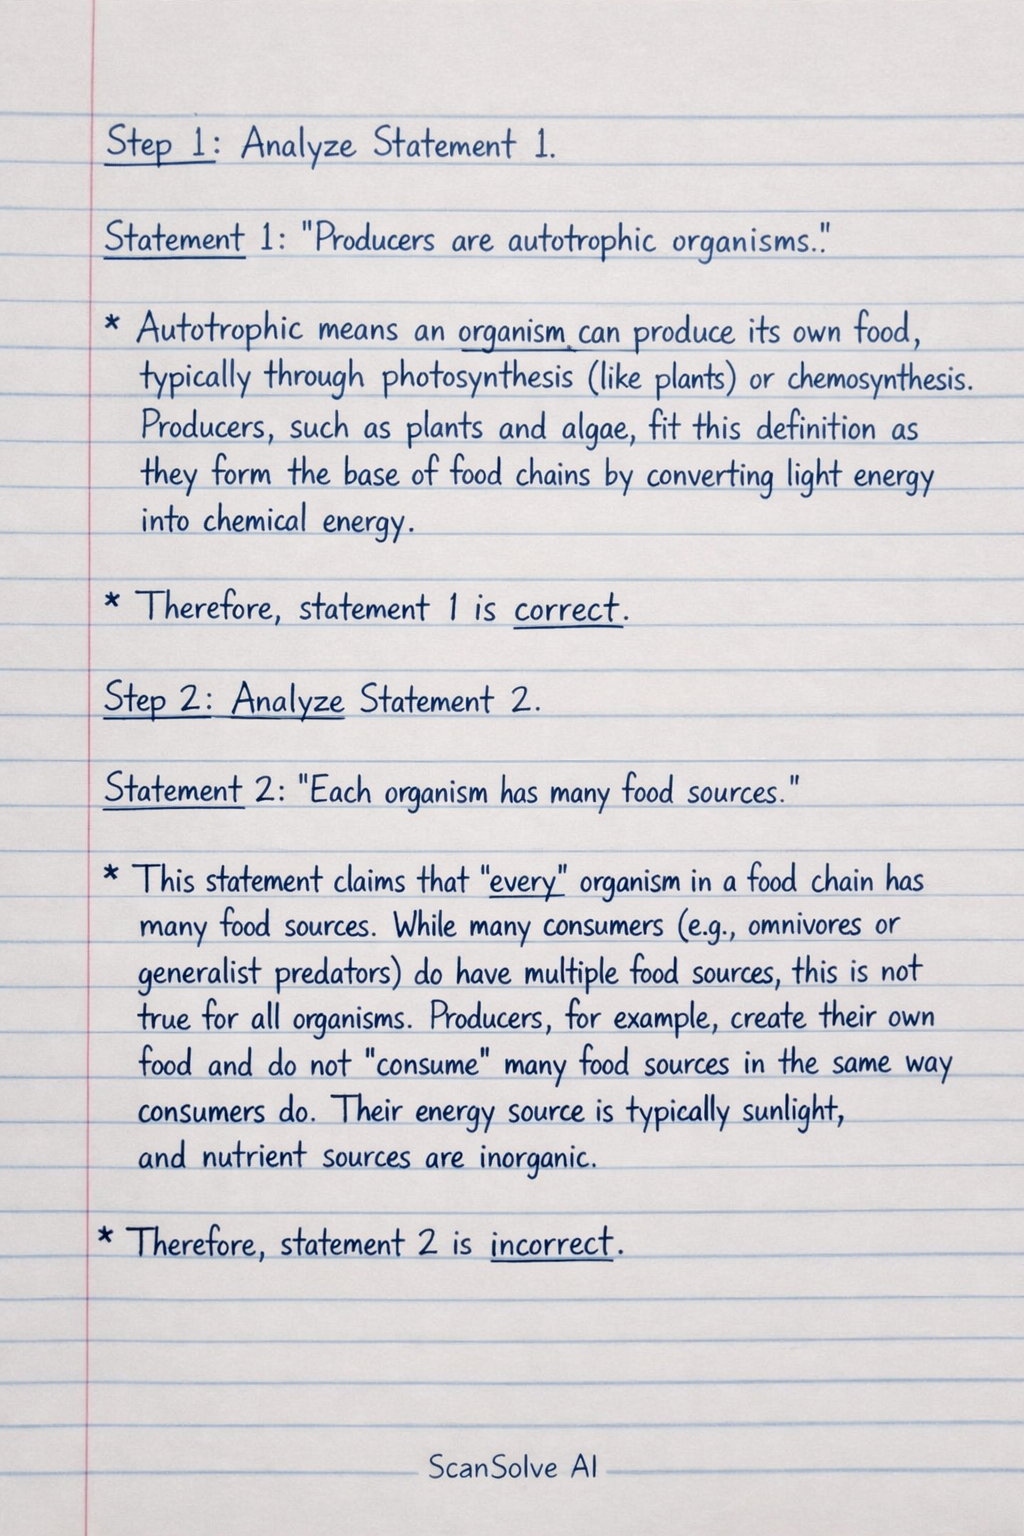 Step 1: Analyze Statement 1.
Statement 1: "Producers are autotrophic organisms.."
* Autotrophic means an organism can produce its own food,
typically through photosynthesis (like plants) or chemosynthesis.
Producers, such as plants and algae, fit this definition as
they form the base of food chains by converting light energy
into chemical energy.
* Therefore, statement 1 is correct.
Step 2: Analyze Statement 2.
Statement 2: "Each organism has many food sources."
* This statement claims that "every" organism in a food chain has
many food sources. While many consumers (e.g., omnivores or
generalist predators) do have multiple food sources, this is not
true for all organisms. Producers, for example, create their own
food and do not "consume" many food sources in the same way
consumers do. Their energy source is typically sunlight,
and nutrient sources are inorganic.
* Therefore, statement 2 is incorrect.
ScanSolve AI